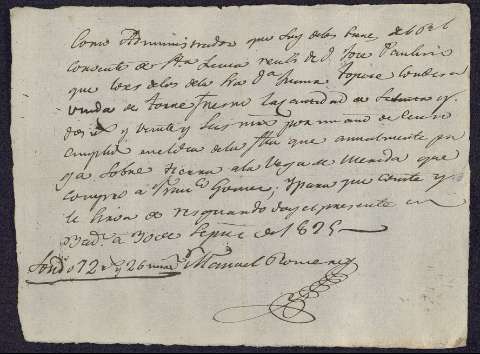 Como Administrador que soy de los bienes del
Convento de Sta Lucia recibi de D. Jose
que los es de los de la Sra Da Juana Topete Condesa
viuda de Torre Fresno la cantidad de setenta y
dos rs y veinte y seis mrs por un año de censo
cumplido en el dia de la fha que anualmente pa
ga sobre tierra a la Vega de Merida que
compro a Franco Gomez; y para que conste y
le sirva de resguardo doy el presente en
Badz a 30 de Sepre de 1825
Son 72 rs y 26 mrs Manuel Romero